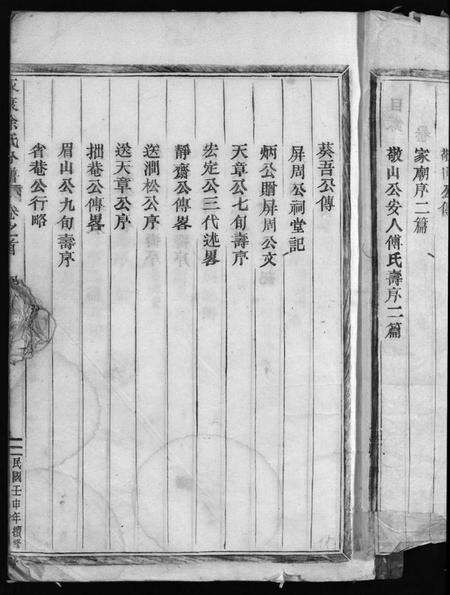 敬山公傳
家廟序二篇
敬山公安人傅氏壽序二篇
葵吾公傳
屏周公祠堂記
炳公贈屏周公文
天章公七旬壽序
宏定公三代述畧
靜齋公傳畧
送澗松公序
送天章公序
拙菴公傳畧
眉山公九旬壽序
省菴公行略
徐氏 譜 卷之首
民國壬申年續修